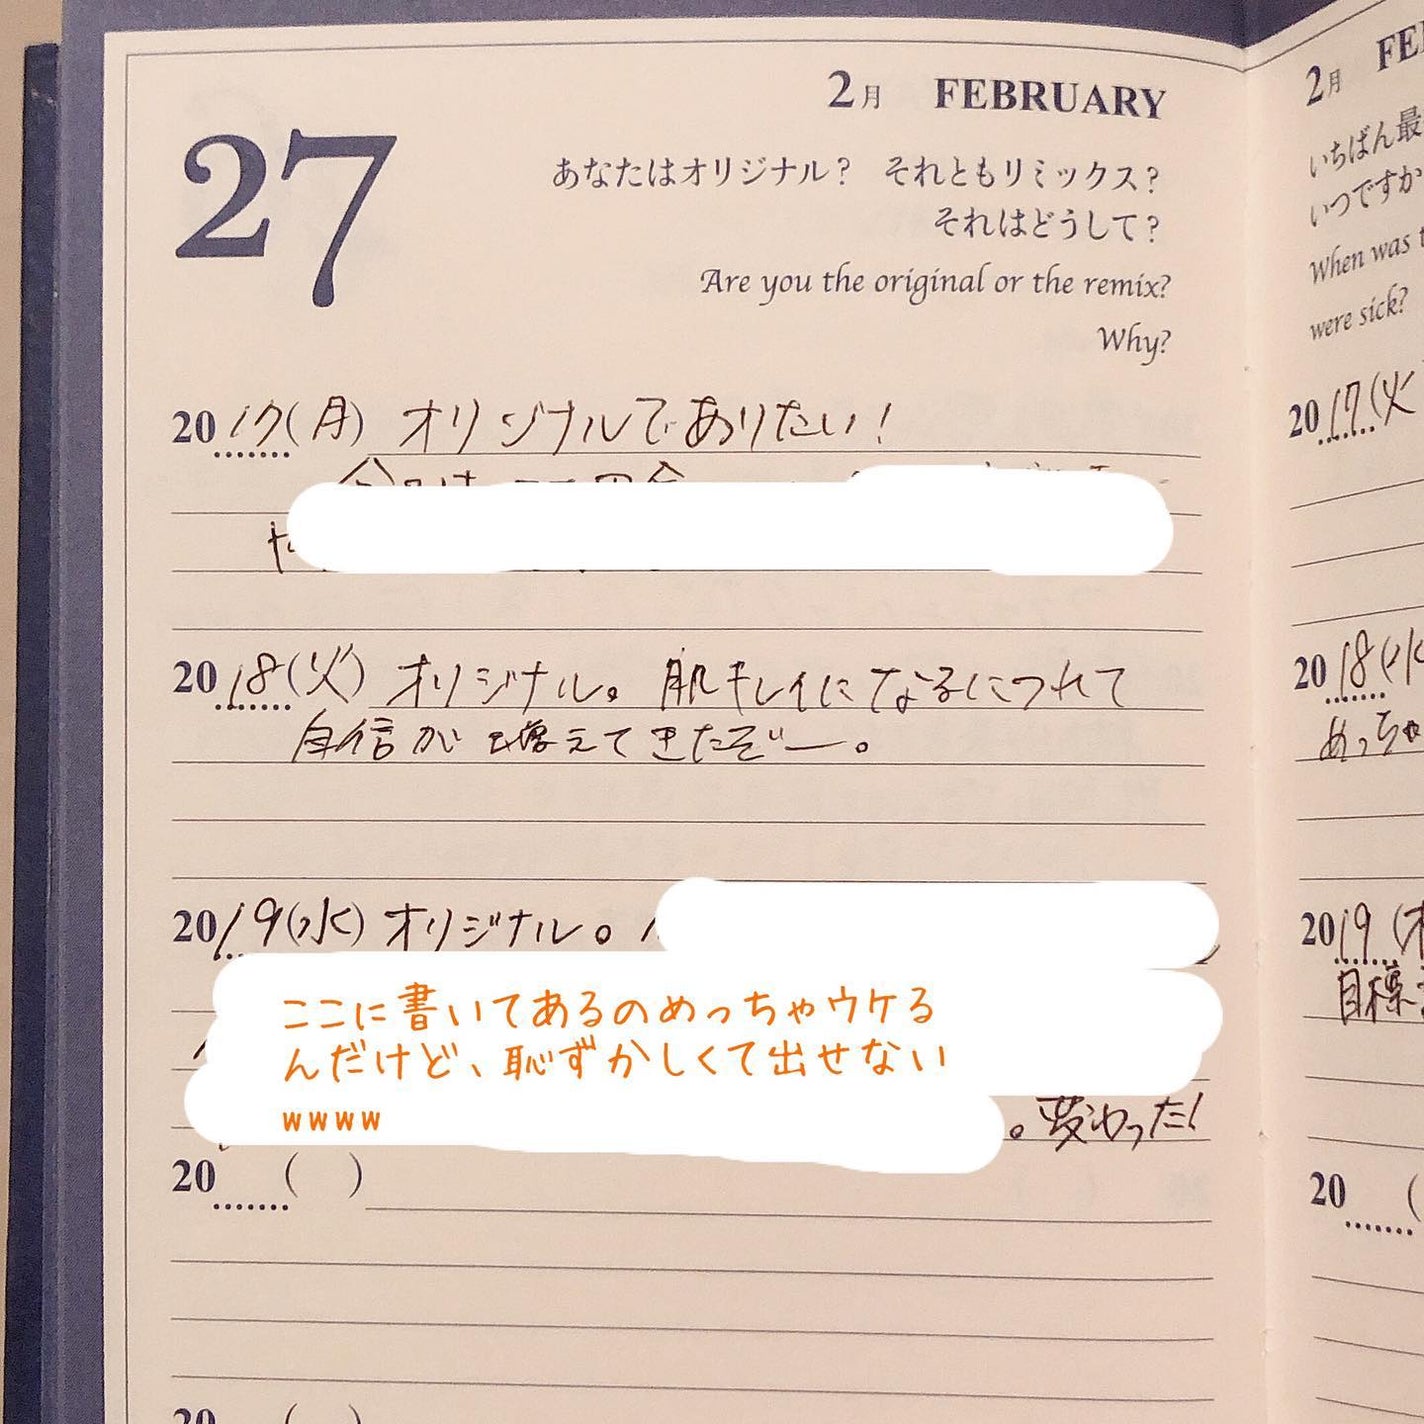 2月 FEBRUARY
27
あなたはオリジナル? それともリミックス?
それはどうして?
Are you the original or the remix?
Why?
2017(月) オリジナルでありたい!
2018(火) オリジナル。肌キレイになるにつれて
自信が増えてきたぞー。
2019(水) オリジナル。
ここに書いてあるのめっちゃウケる
んだけど、恥ずかしくて出せない
wwww
。変わった!
20 ( )
20 ( )
2月 FE
いちばん最
いつですか
When was t
were sick?
2017(火
2018(水
めっちゃ
2019(木
目標
20 (